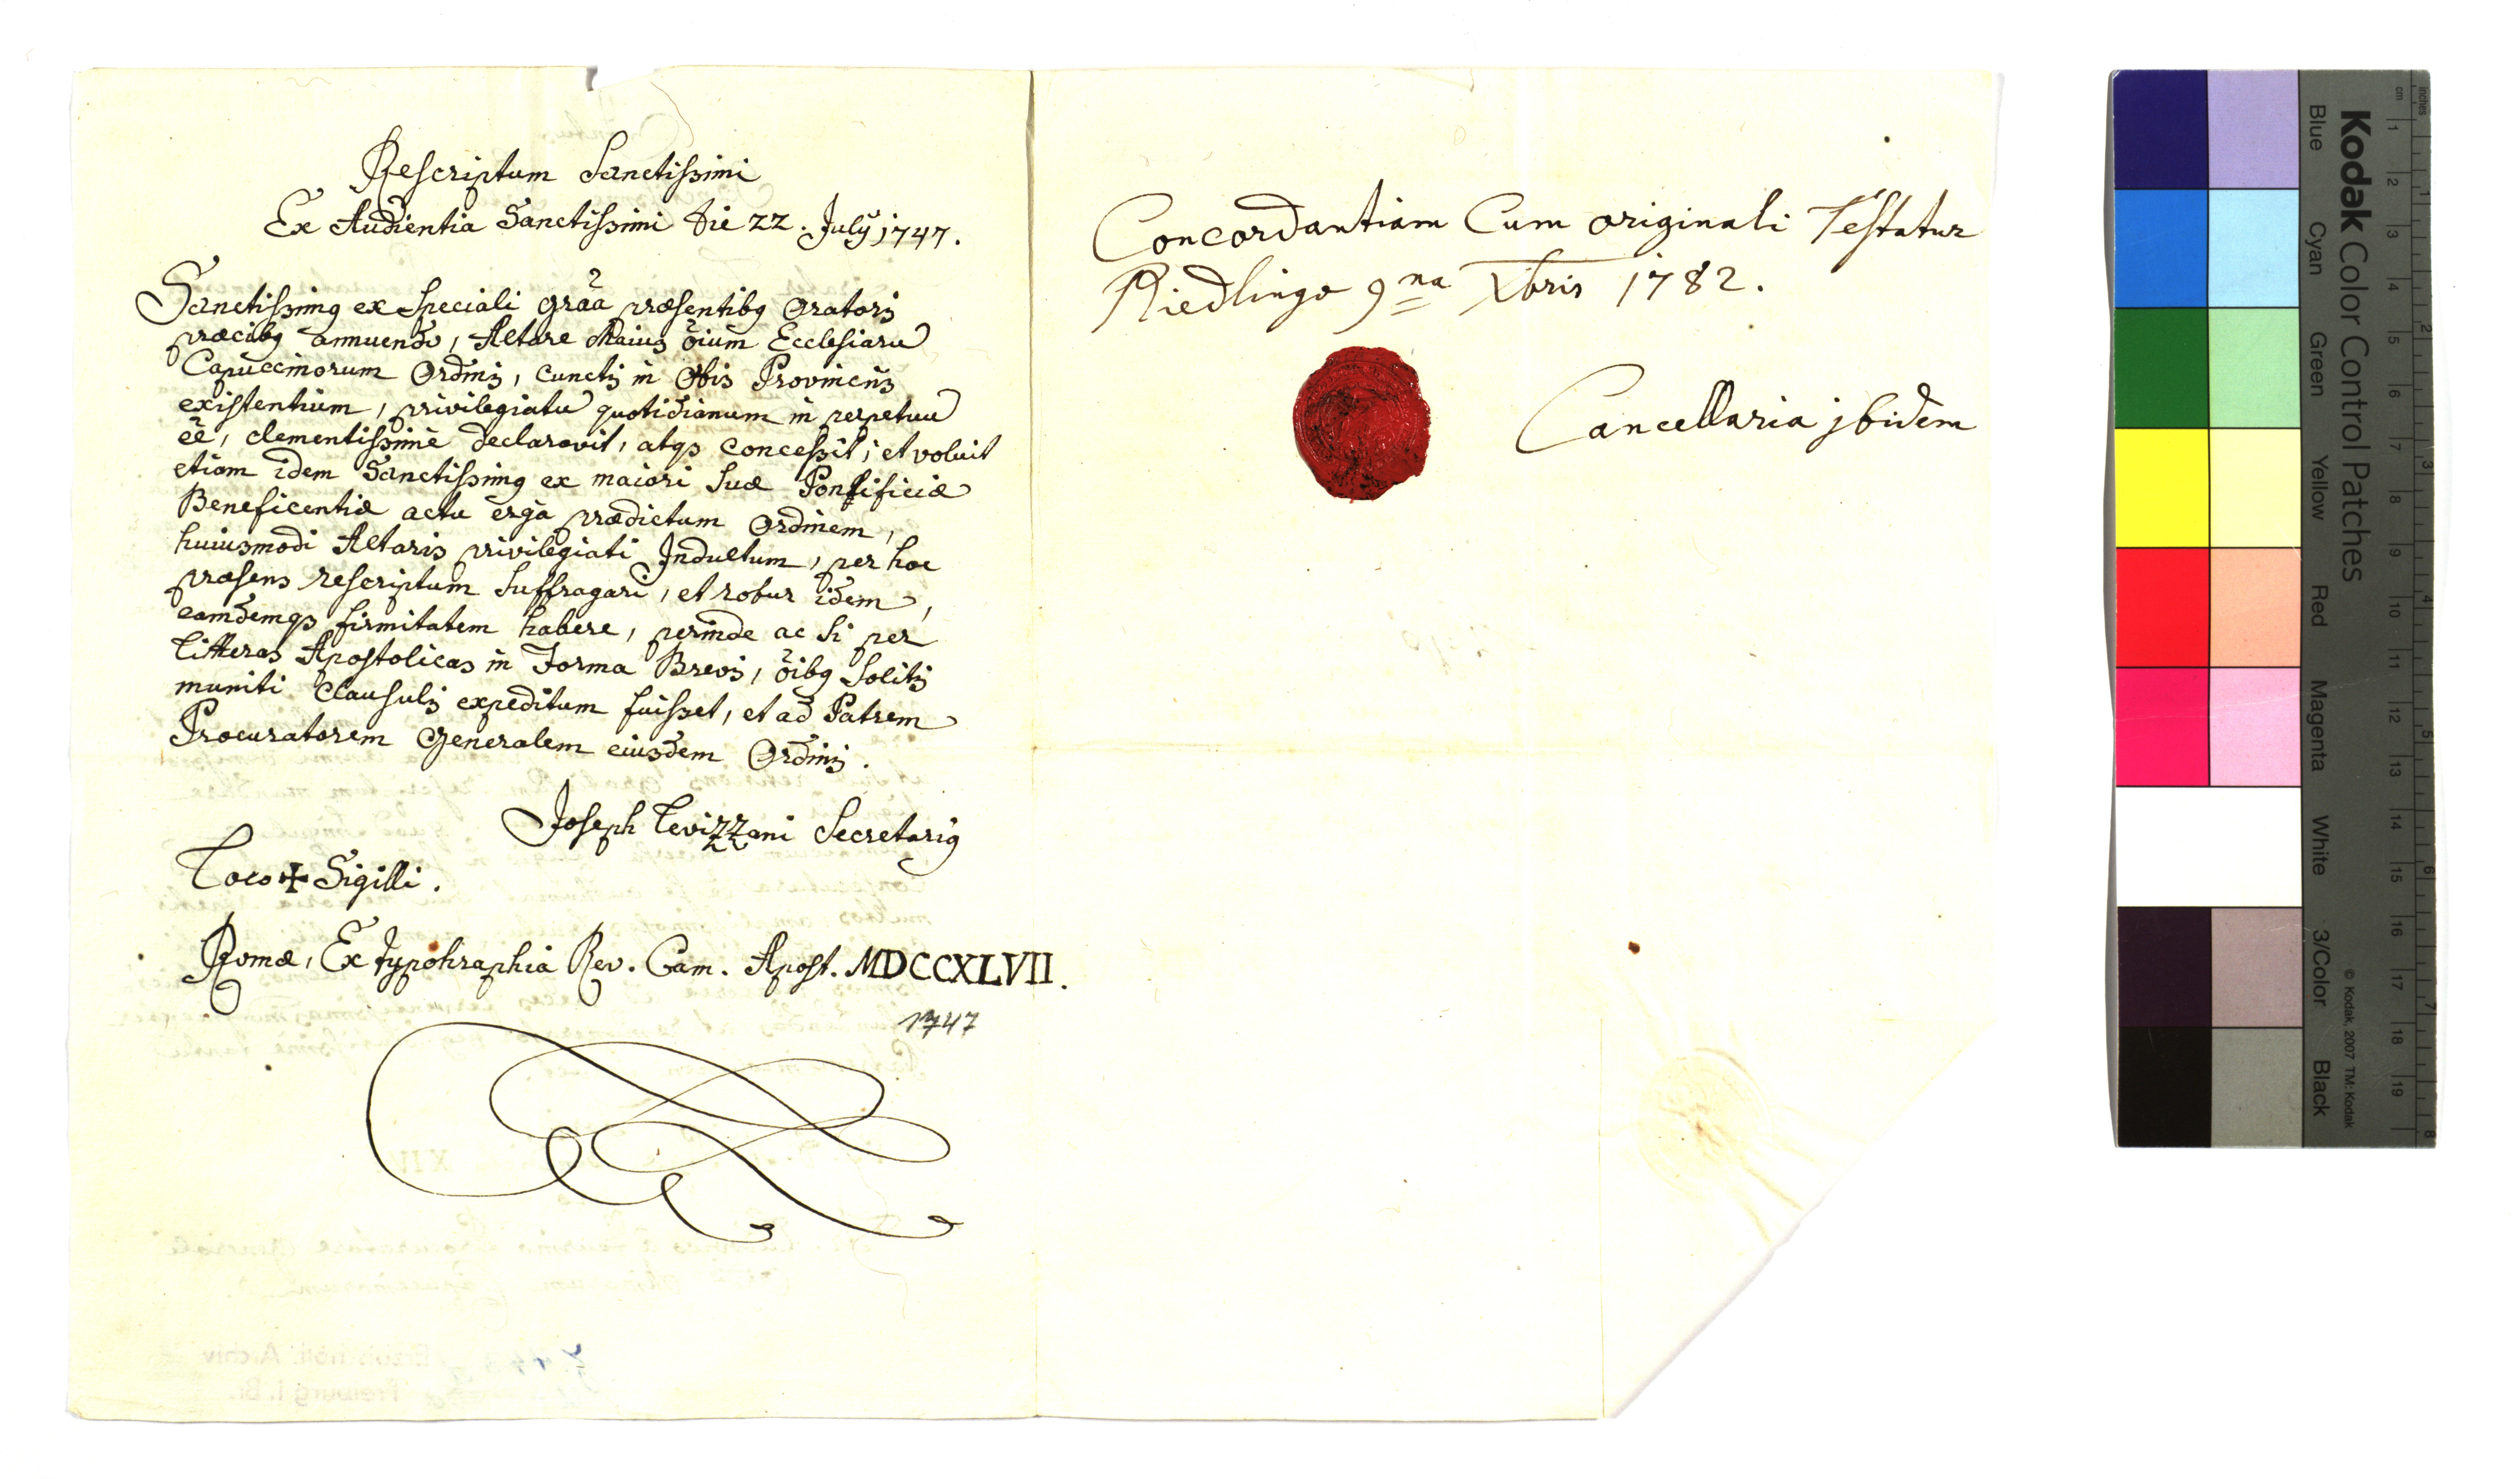 Rescriptum Sanctissimi
Ex Audientia Sanctissimi die 22. July 1747.
Sanctissimꝯ ex Speciali grãa præsentibꝯ Oratoris
præcibꝯ annuendo, Altare Maius õium Ecclesiarũ
Capuccinorum Ordinis, cunctis in Orbis Provinciis
existentium, privilegiatũ quotidianum in perpetuũ
eẽ, clementissimè declaravit, atqꝫ concessit; et voluit
etiam idem Sanctissimꝯ ex maiori Suæ Pontificiæ
Beneficentiæ actu ergà prædictum Ordinem,
huiusmodi Altaris privilegiati Indultum, per hoc
præsens rescriptum Suffragari, et robur idem,
eamdemqꝫ firmitatem habere, perinde ac Si per
Litteras Apostolicas in Forma Brevis, õibꝯ Solitis
muniti Clausulis expeditum fuisset, et ad Patrem
Procuratorem Generalem eiusdem Ordinis.
Joseph Levizzani Secretariꝯ
Loco ✠ Sigilli.
Romæ, Ex typohraphia Rev. Cam. Apost. MDCCXLVII.
1747
Concordantiam Cum originali Testatur
Riedlingæ 9na Xbris 1782.
Cancellaria jbidem
Kodak Color Control Patches
Blue Cyan Green Yellow Red Magenta White 3/Color Black
© Kodak, 2007 TM: Kodak
inches 1 2 3 4 5 6 7 8
cm 1 2 3 4 5 6 7 8 9 10 11 12 13 14 15 16 17 18 19